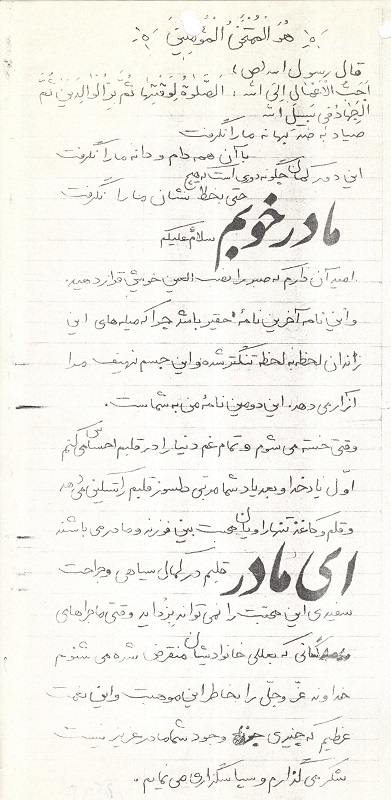 هُوَ المُمْتَحِنُ المُؤْمِنِینَ
قال رسول الله (ص)
اَحَبُّ الاَعْمٰالِ اِلَی اللّه : اَلصَّلوٰةُ لِوَقْتِهٰا ثُمَّ بِرُّ الوٰالِدَیْنِ ثُمَّ
الجِهٰادُ فی سَبیلِ الله
صیاد به صد بهانه ما را نگرفت
با آن همه دام و دانه ما را نگرفت
این دور کمان چگونه دوری است که هیچ
حتی بخطا نشان ما را نگرفت
مادر خوبم
سلام علیکم
امید آن دارم که صبر را نصب العین خویش قرار دهید.
و این نامه آخرین نامهٔ حقیر باشد چرا که میله های این
زندان لحظه به لحظه تنگتر شده و این جسم نحیف مرا
آزار می دهد. این دومین نامهٔ من به شماست.
وقتی خسته می شوم و تمام غم دنیا را در قلبم احساس می کنم
اوّل یاد خدا و بعد یاد شما مربی دلسوز قلبم را تسکین می دهد
و قلم و کاغذ تنها راویان محبت بین فرزند و مادر می باشند
ای مادر
قلبم در کمال سیاهی و جراحت
سفیدی این محبّت را نمی تواند بزداید وقتی ماجراهای
کسانی که بعللی خانوادیشان منقرض شده می شنوم
خداوند عزّ و جلّ را بخاطر این موهبت و این نعمت
عظیم که چیزی جز وجود شما مادر عزیز نیست
شکر می گذارم و سپاسگزاری می نمایم.